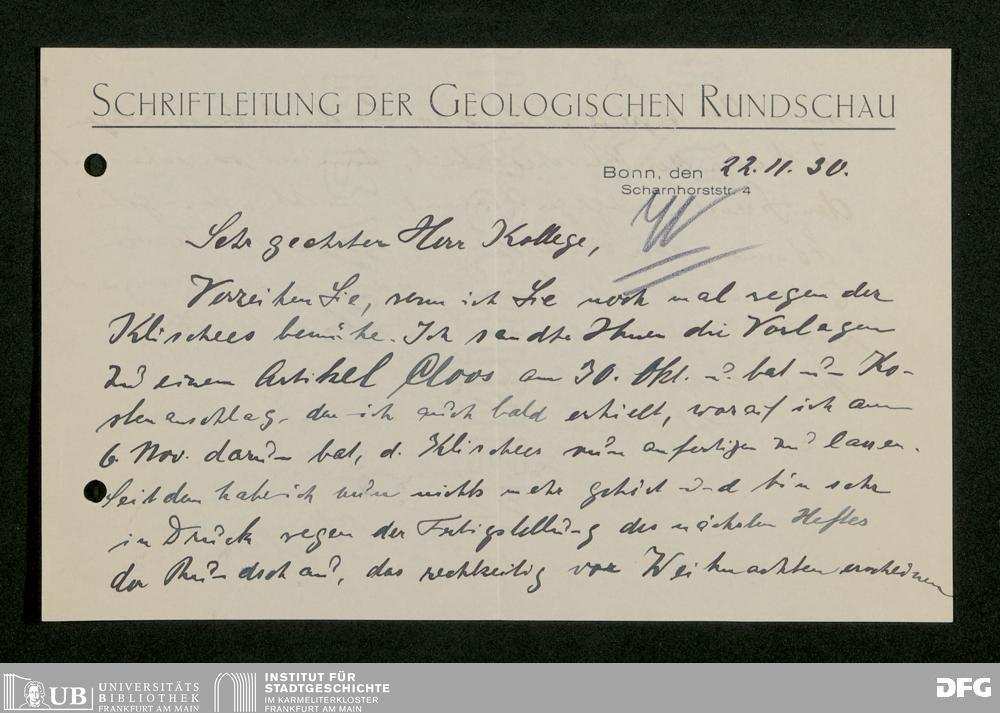 SCHRIFTLEITUNG DER GEOLOGISCHEN RUNDSCHAU
Bonn, den 22.11.30.
Scharnhorststr. 4
Sehr geehrter Herr Kollege,
Verzeihen Sie, wenn ich Sie noch mal wegen der
Klischees bemühe. Ich sandte Ihnen die Vorlagen
zu einem Artikel Cloos am 30. Okt. u. bat um Ko-
stenanschlag, den ich auch bald erhielt, worauf ich am
6. Nov. darum bat, d. Klischees nun anfertigen zu lassen.
Seitdem habe ich nun nichts mehr gehört und bin sehr
in Druck wegen der Fertigstellung des nächsten Heftes
der Rundschau, das rechtzeitig vor Weihnachten erscheinen
UB UNIVERSITÄTS
BIBLIOTHEK
FRANKFURT AM MAIN
INSTITUT FÜR
STADTGESCHICHTE
IM KARMELITERKLOSTER
FRANKFURT AM MAIN
DFG